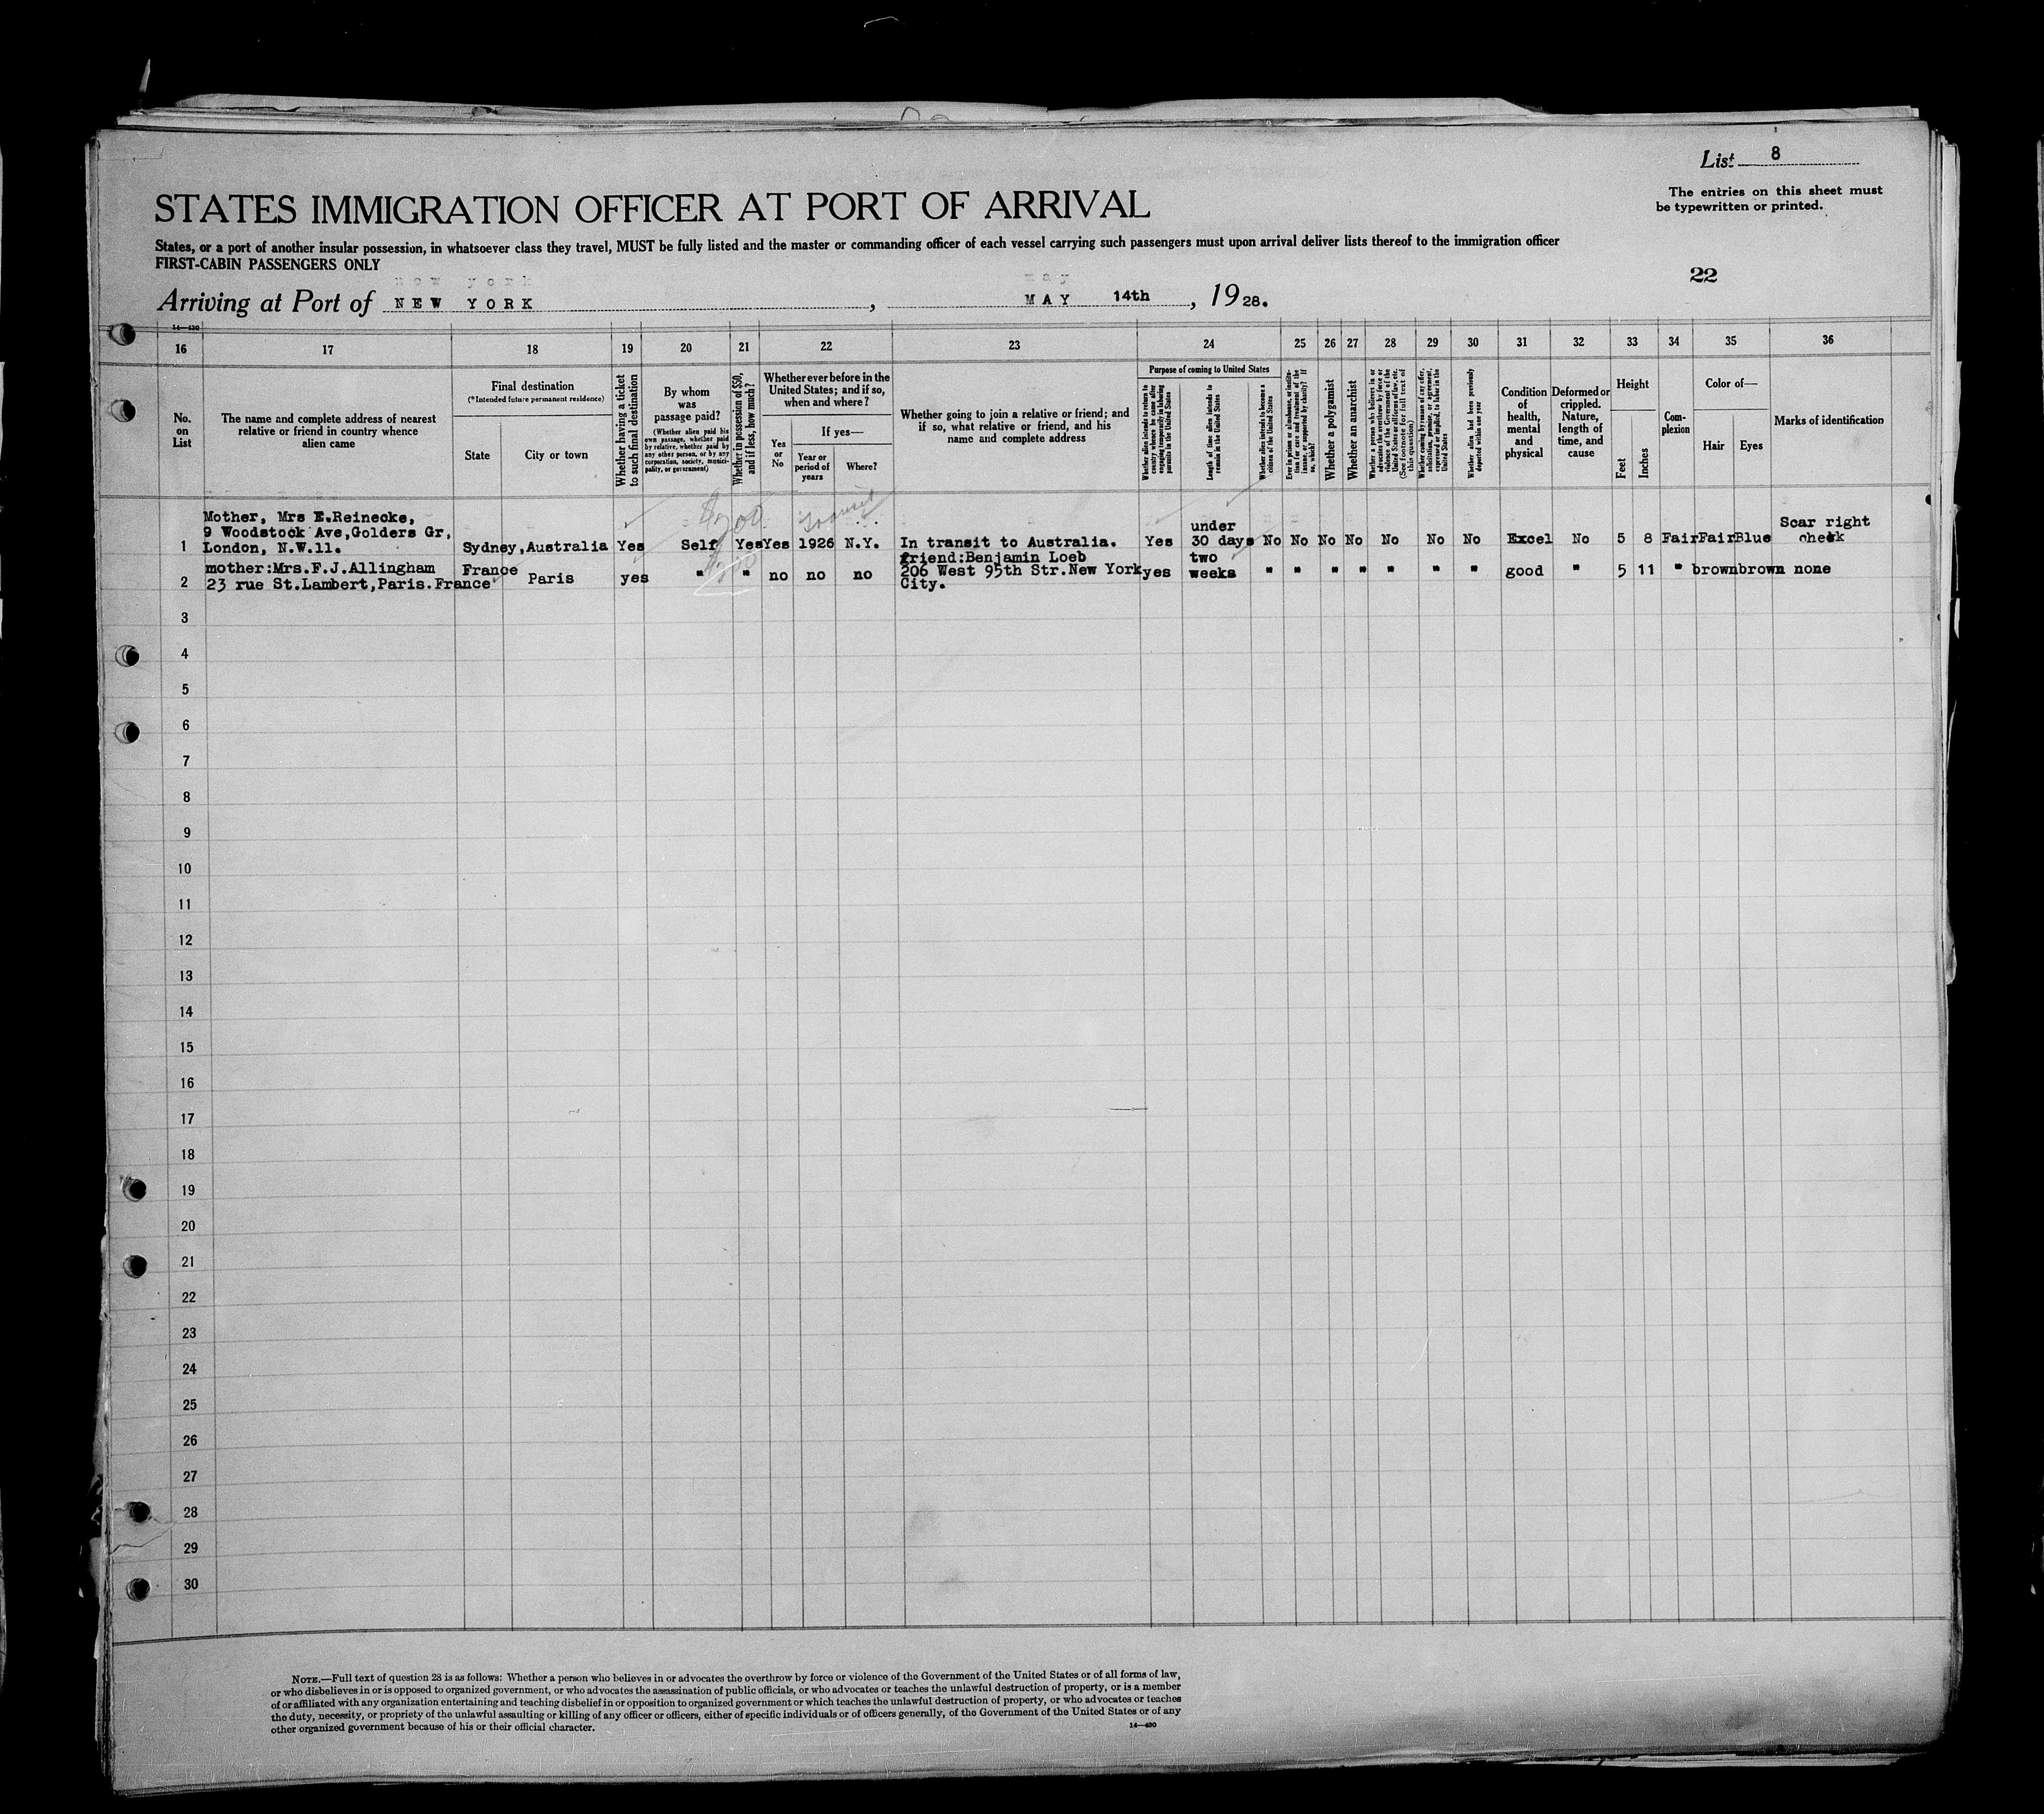 List 8
The entries on this sheet must
be typewritten or printed.
STATES IMMIGRATION OFFICER AT PORT OF ARRIVAL
States, or a port of another insular possession, in whatsoever class they travel, MUST be fully listed and the master or commanding officer of each vessel carrying such passengers must upon arrival deliver lists thereof to the immigration officer
FIRST-CABIN PASSENGERS ONLY
22
Arriving at Port of NEW YORK, MAY 14th, 1928.
14—430
16 17 18 19 20 21 22 23 24 25 26 27 28 29 30 31 32 33 34 35 36
No. on List
The name and complete address of nearest
relative or friend in country whence
alien came
Final destination
(*Intended future permanent residence)
State
City or town
Whether having a ticket
to such final destination
By whom
was
passage paid?
(Whether alien paid his
own passage, whether paid
by relative, whether paid by
any other person, or by any
corporation, society, munici-
pality, or government)
Whether in possession of $50,
and if less, how much?
Whether ever before in the
United States; and if so,
when and where?
Yes
or
No
If yes—
Year or
period of
years
Where?
Whether going to join a relative or friend; and
if so, what relative or friend, and his
name and complete address
Purpose of coming to United States
Whether alien intends to return to
country whence he came after
engaging temporarily in laboring
pursuits in the United States
Length of time alien intends to
remain in the United States
Whether alien intends to become a
citizen of the United States
Ever in prison or almshouse, or institu-
tion for care and treatment of the
insane, or supported by charity? If
so, which?
Whether a polygamist
Whether an anarchist
Whether a person who believes in or
advocates the overthrow by force or
violence of the Government of the
United States or all forms of law, etc.
(See footnote for full text of
this question)
Whether coming by reason of any offer,
solicitation, promise, or agreement,
expressed or implied, to labor in the
United States
Whether alien had been previously
deported within one year
Condition
of
health,
mental
and
physical
Deformed or
crippled.
Nature,
length of
time, and
cause
Height
Feet
Inches
Com-
plexion
Color of—
Hair
Eyes
Marks of identification
Mother, Mrs E.Reinecke,
9 Woodstock Ave,Golders Gr,
1 London, N.W.11. Sydney,Australia Yes Self Yes Yes 1926 N.Y. In transit to Australia. Yes under 30 days No No No No No No No Excel No 5 8 Fair Fair Blue Scar right cheek
$200 Transit
mother:Mrs.F.J.Allingham
2 23 rue St.Lambert,Paris.France France Paris yes " " no no no friend:Benjamin Loeb 206 West 95th Str.New York City. yes two weeks " " " " " " " good " 5 11 " brown brown none
3
4
5
6
7
8
9
10
11
12
13
14
15
16
17
18
19
20
21
22
23
24
25
26
27
28
29
30
NOTE.—Full text of question 28 is as follows: Whether a person who believes in or advocates the overthrow by force or violence of the Government of the United States or of all forms of law,
or who disbelieves in or is opposed to organized government, or who advocates the assassination of public officials, or who advocates or teaches the unlawful destruction of property, or is a member
of or affiliated with any organization entertaining and teaching disbelief in or opposition to organized government or which teaches the unlawful destruction of property, or who advocates or teaches
the duty, necessity, or propriety of the unlawful assaulting or killing of any officer or officers, either of specific individuals or of officers generally, of the Government of the United States or of any
other organized government because of his or their official character.
14—430